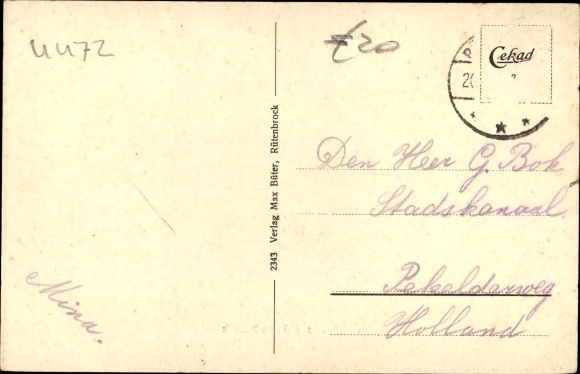 4472
£20
Cekad
2343 Verlag Max Büter, Rütenbrock
Den Heer G. Bok
Stadskanaal
Pekelderweg
Holland
Mina.